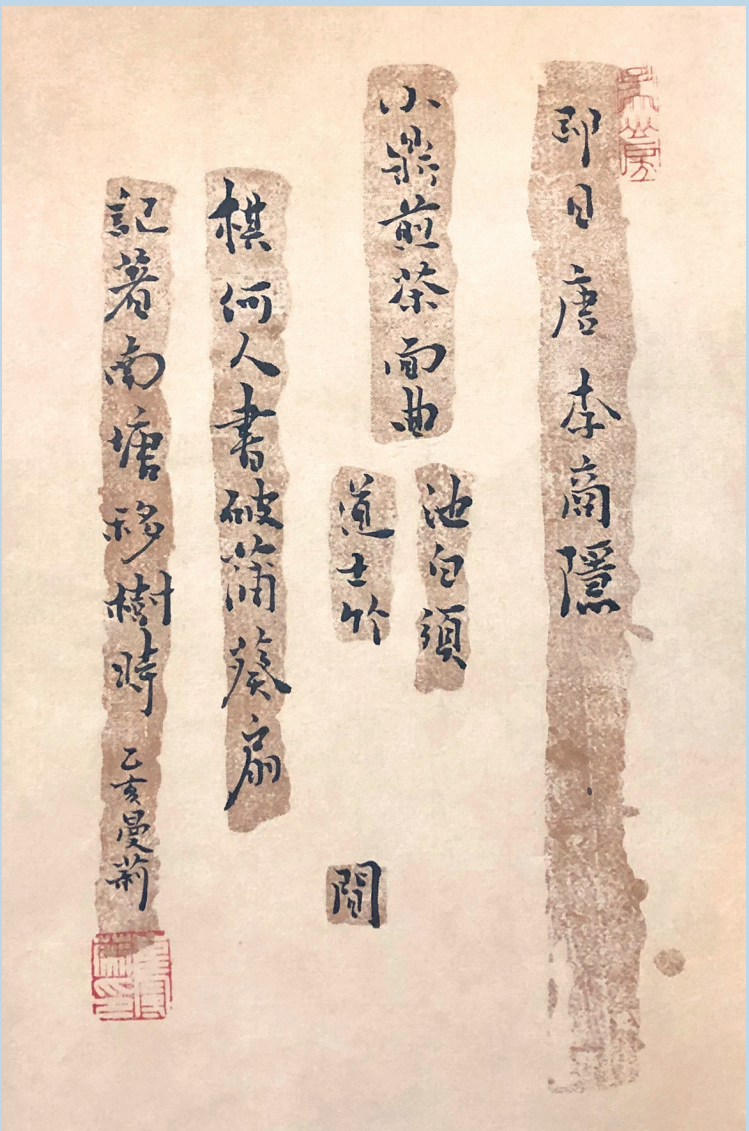 即日唐李商隱
小鼎煎茶面曲
池白須
道士竹
間
棋何人書破蒲葵扇
記著南塘移樹時
乙亥曼莉